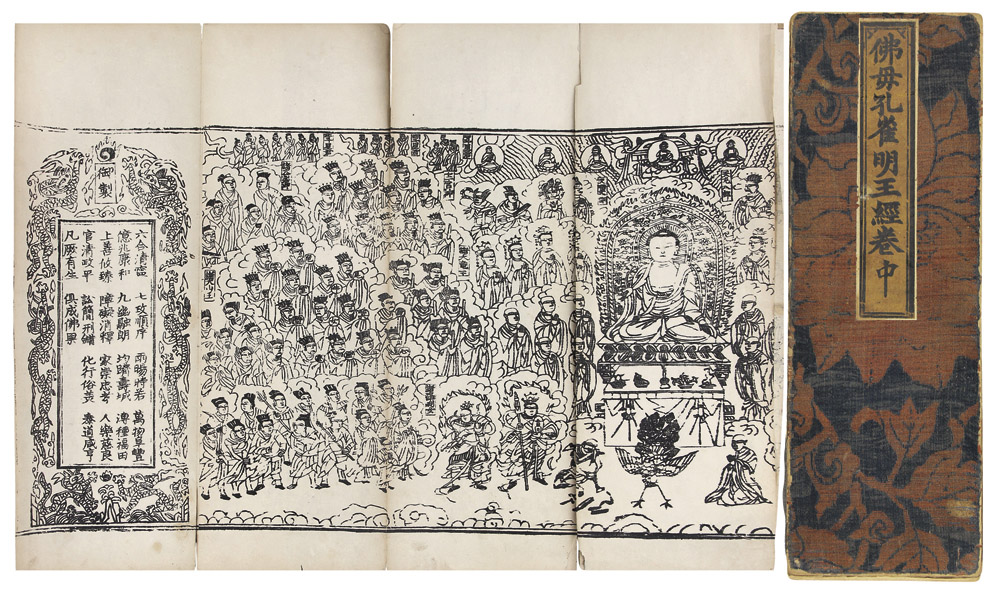 御製
六合清寧 七政順序 雨暘時若 萬物阜豐
億兆康和 九幽融朗 均躋壽域 溥種福田
上善攸臻 障礙消釋 家崇忠孝 人樂慈良
官清政平 訟簡刑措 化行俗美 泰道咸亨
凡厥有生 俱成佛果
佛母孔雀明王經卷中